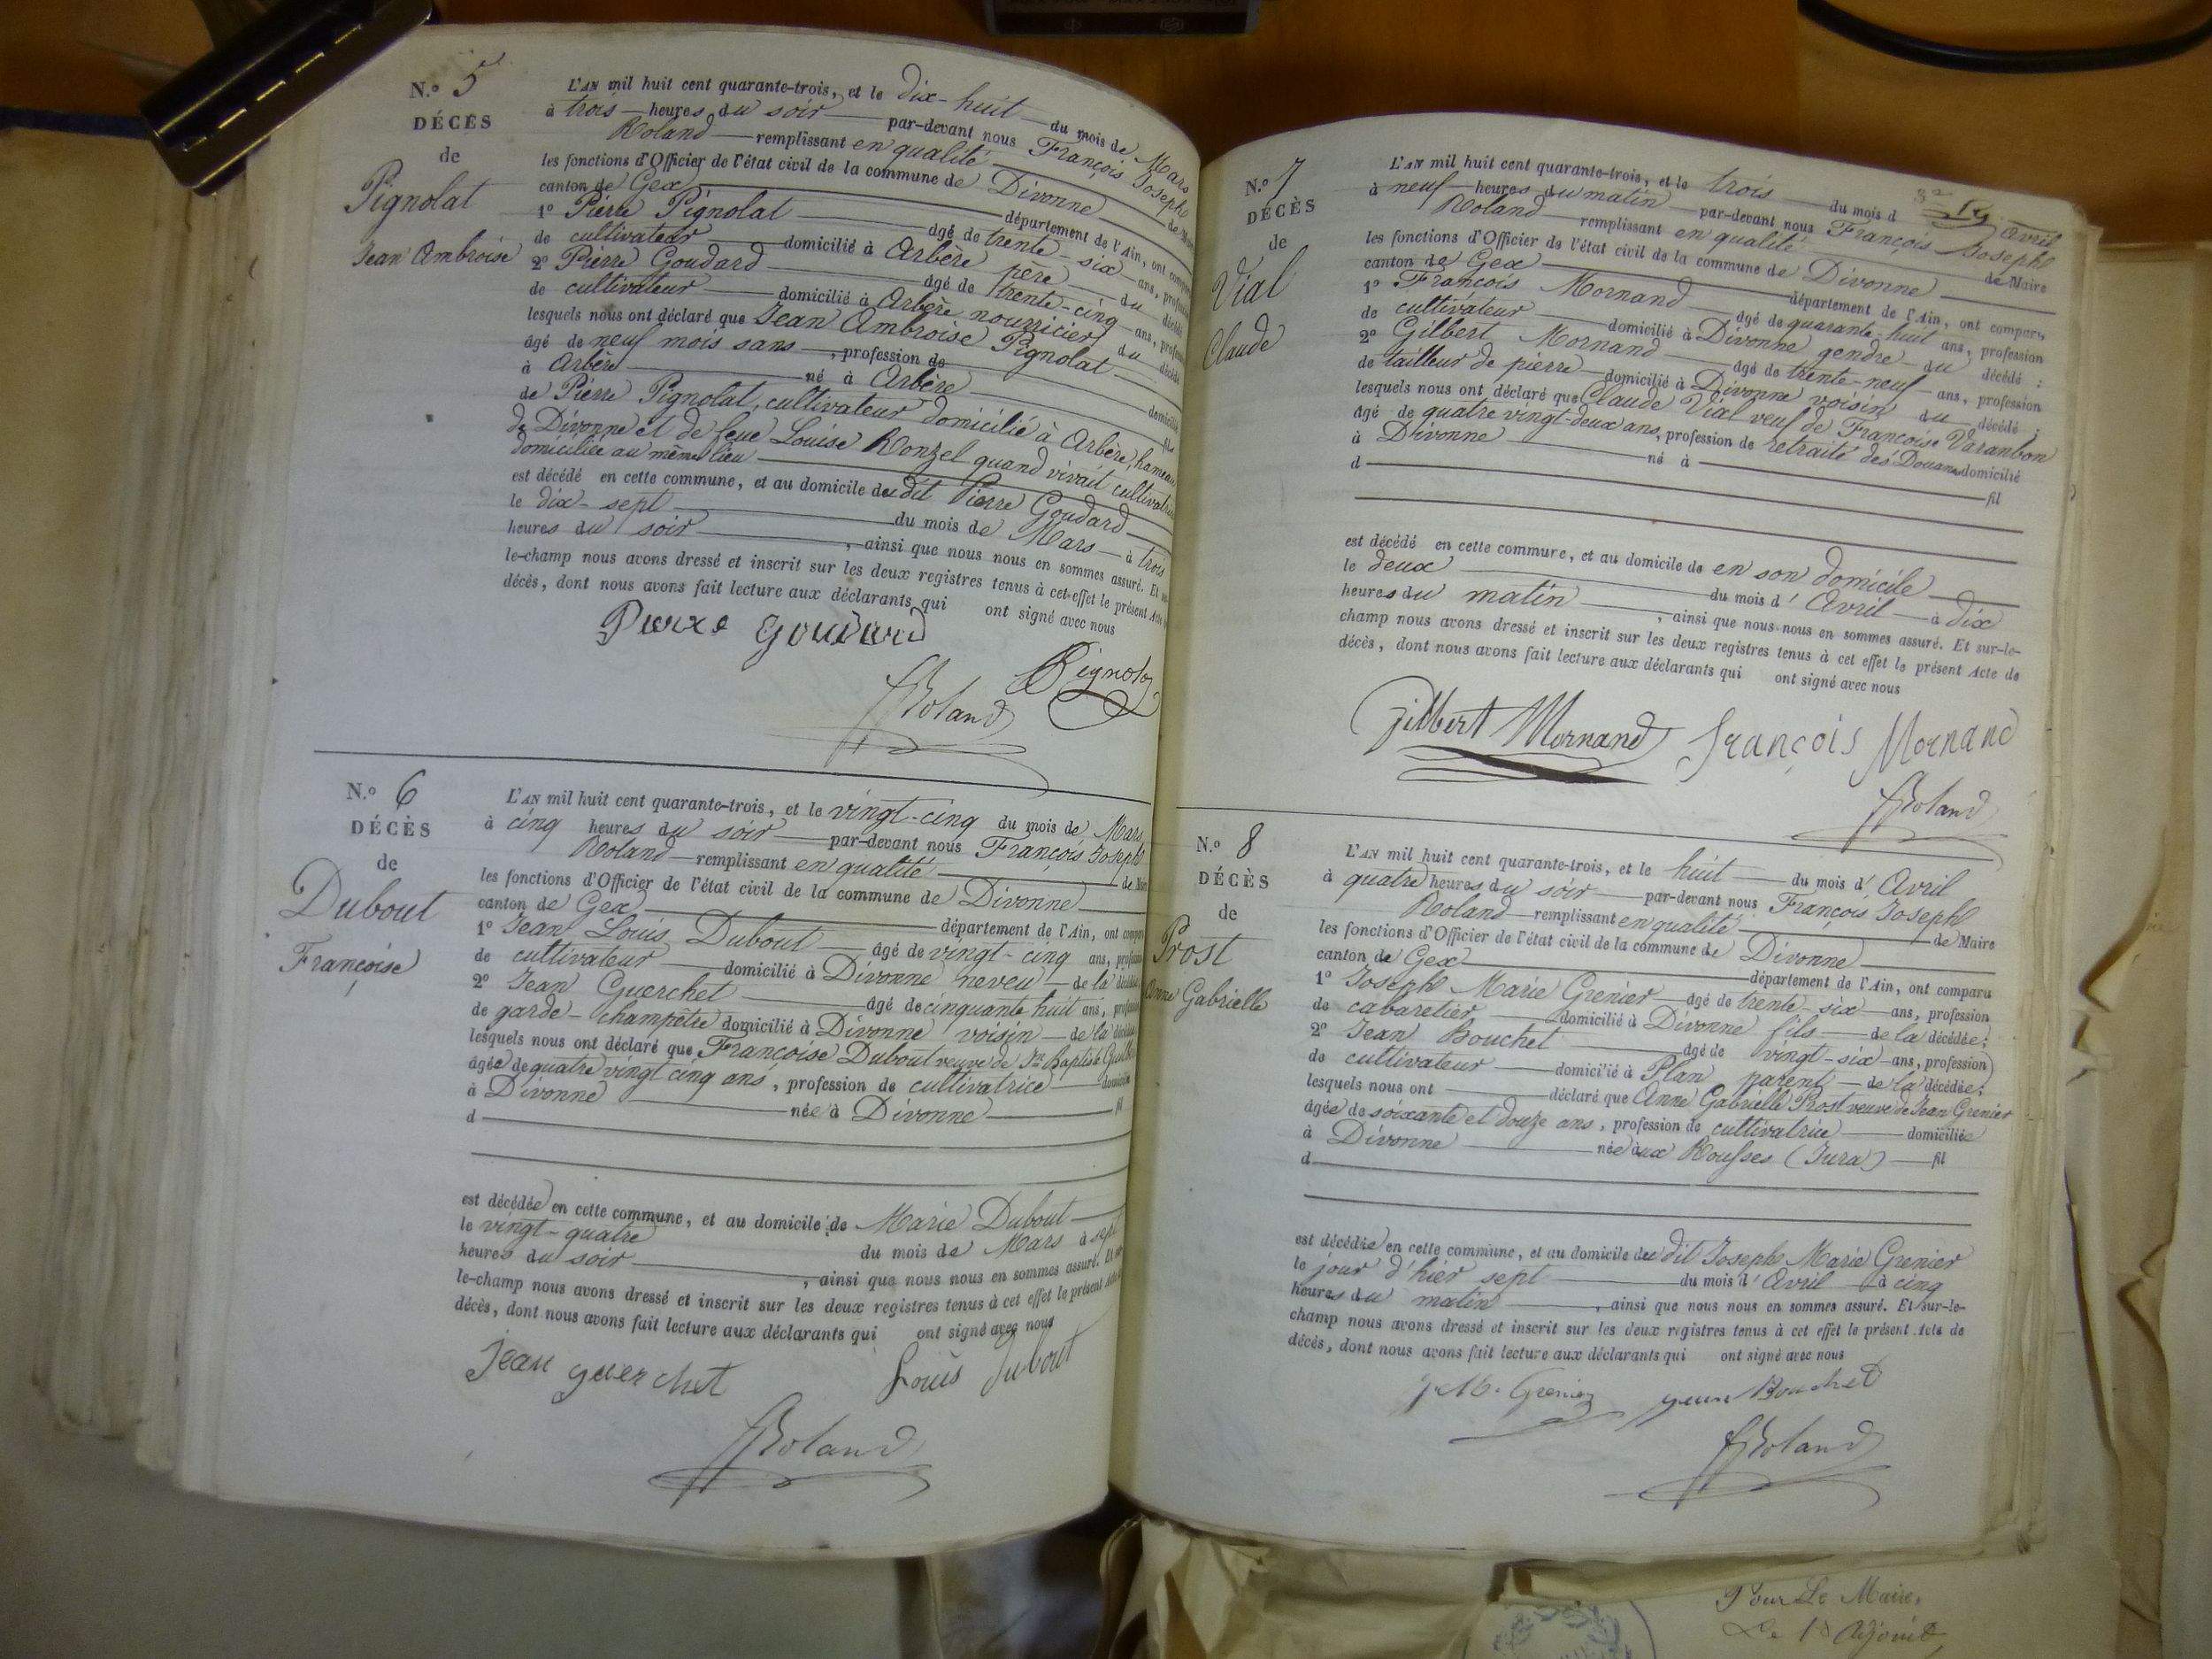 N.o 5
DÉCÈS
de
Pignolat
Jean Ambroise
L'AN mil huit cent quarante-trois, et le dix-huit du mois de Mars
à trois heures du soir par-devant nous François Joseph
Roland remplissant en qualité de
les fonctions d'Officier de l'état civil de la commune de Divonne
canton de Gex département de l'Ain, ont
1o Pierre Pignolat âgé de trente-six ans,
de cultivateur domicilié à Arbère père du décédé
2o Pierre Goudard âgé de trente-cinq ans,
de cultivateur domicilié à Arbère nourricier du décédé
lesquels nous ont déclaré que Jean Ambroise Pignolat
âgé de neuf mois sans , profession de
à Arbère né à Arbère fils
de Pierre Pignolat, cultivateur domicilié à Arbère, hameau
de Divonne et de feue Louise Ronzel quand vivait cultivatrice
domiciliée au même lieu
est décédé en cette commune, et au domicile du dit Pierre Goudard
le dix-sept du mois de Mars à trois
heures du soir , ainsi que nous nous en sommes assuré. Et
le-champ nous avons dressé et inscrit sur les deux registres tenus à cet effet le présent Acte
décès, dont nous avons fait lecture aux déclarants qui ont signé avec nous
Pierre Goudard
Pignolat
Roland
N.o 6
DÉCÈS
de
Dubout
Françoise
L'AN mil huit cent quarante-trois, et le vingt-cinq du mois de Mars
à cinq heures du soir par-devant nous François Joseph
Roland remplissant en qualité de
les fonctions d'Officier de l'état civil de la commune de Divonne
canton de Gex département de l'Ain, ont
1o Jean Louis Dubout âgé de vingt-cinq ans,
de cultivateur domicilié à Divonne neveu de la
2o Jean Guerchet âgé de cinquante huit ans,
de garde-champêtre domicilié à Divonne voisin de la
lesquels nous ont déclaré que Françoise Dubout veuve de Jn Baptiste
âgée de quatre vingt cinq ans, profession de cultivatrice
à Divonne née à Divonne fil
d
est décédée en cette commune, et au domicile de Marie Dubout
le vingt-quatre du mois de Mars à sept
heures du soir , ainsi que nous nous en sommes assuré. Et
le-champ nous avons dressé et inscrit sur les deux registres tenus à cet effet le présent
décès, dont nous avons fait lecture aux déclarants qui ont signé avec nous
Jean guerchet Louis Dubout
Roland
N.o 7
DÉCÈS
de
Vial
Claude
L'AN mil huit cent quarante-trois, et le trois du mois d avril
à neuf heures du matin par-devant nous François Joseph
Roland remplissant en qualité de Maire
les fonctions d'Officier de l'état civil de la commune de Divonne
canton de Gex département de l'Ain, ont comparu
1o François Mornand âgé de quarante-huit ans, profession
de cultivateur domicilié à Divonne gendre du décédé ;
2o Gilbert Mornand âgé de trente-neuf ans, profession
de tailleur de pierre domicilié à Divonne voisin du décédé ;
lesquels nous ont déclaré que Claude Vial veuf de Françoise Varambon
âgé de quatre vingt-deux ans, profession de retraité des Douanes domicilié
à Divonne né à fil
d
est décédé en cette commune, et au domicile de en son domicile
le deux du mois d' Avril à dix
heures du matin , ainsi que nous nous en sommes assuré. Et sur-le-
champ nous avons dressé et inscrit sur les deux registres tenus à cet effet le présent Acte de
décès, dont nous avons fait lecture aux déclarants qui ont signé avec nous
Gilbert Mornand François Mornand
Roland
N.o 8
DÉCÈS
de
Prost
Anne Gabrielle
L'AN mil huit cent quarante-trois, et le huit du mois d' Avril
à quatre heures du soir par-devant nous François Joseph
Roland remplissant en qualité de Maire
les fonctions d'Officier de l'état civil de la commune de Divonne
canton de Gex département de l'Ain, ont comparu
1o Joseph Marie Grenier âgé de trente six ans, profession
de cabaretier domicilié à Divonne fils de la décédée ;
2o Jean Bouchet âgé de vingt-six ans, profession
de cultivateur domicilié à Plan parent de la décédée ;
lesquels nous ont déclaré que Anne Gabrielle Prost veuve de Jean Grenier
âgée de soixante et douze ans, profession de cultivatrice domiciliée
à Divonne née aux Rousses (Jura) fil
d
est décédée en cette commune, et au domicile du dit Joseph Marie Grenier
le jour d'hier sept du mois d' Avril à cinq
heures du matin , ainsi que nous nous en sommes assuré. Et sur-le-
champ nous avons dressé et inscrit sur les deux registres tenus à cet effet le présent Acte de
décès, dont nous avons fait lecture aux déclarants qui ont signé avec nous
J M. Grenier Jean Bouchet
Roland
Pour Le Maire,
Le 1r Adjoint,